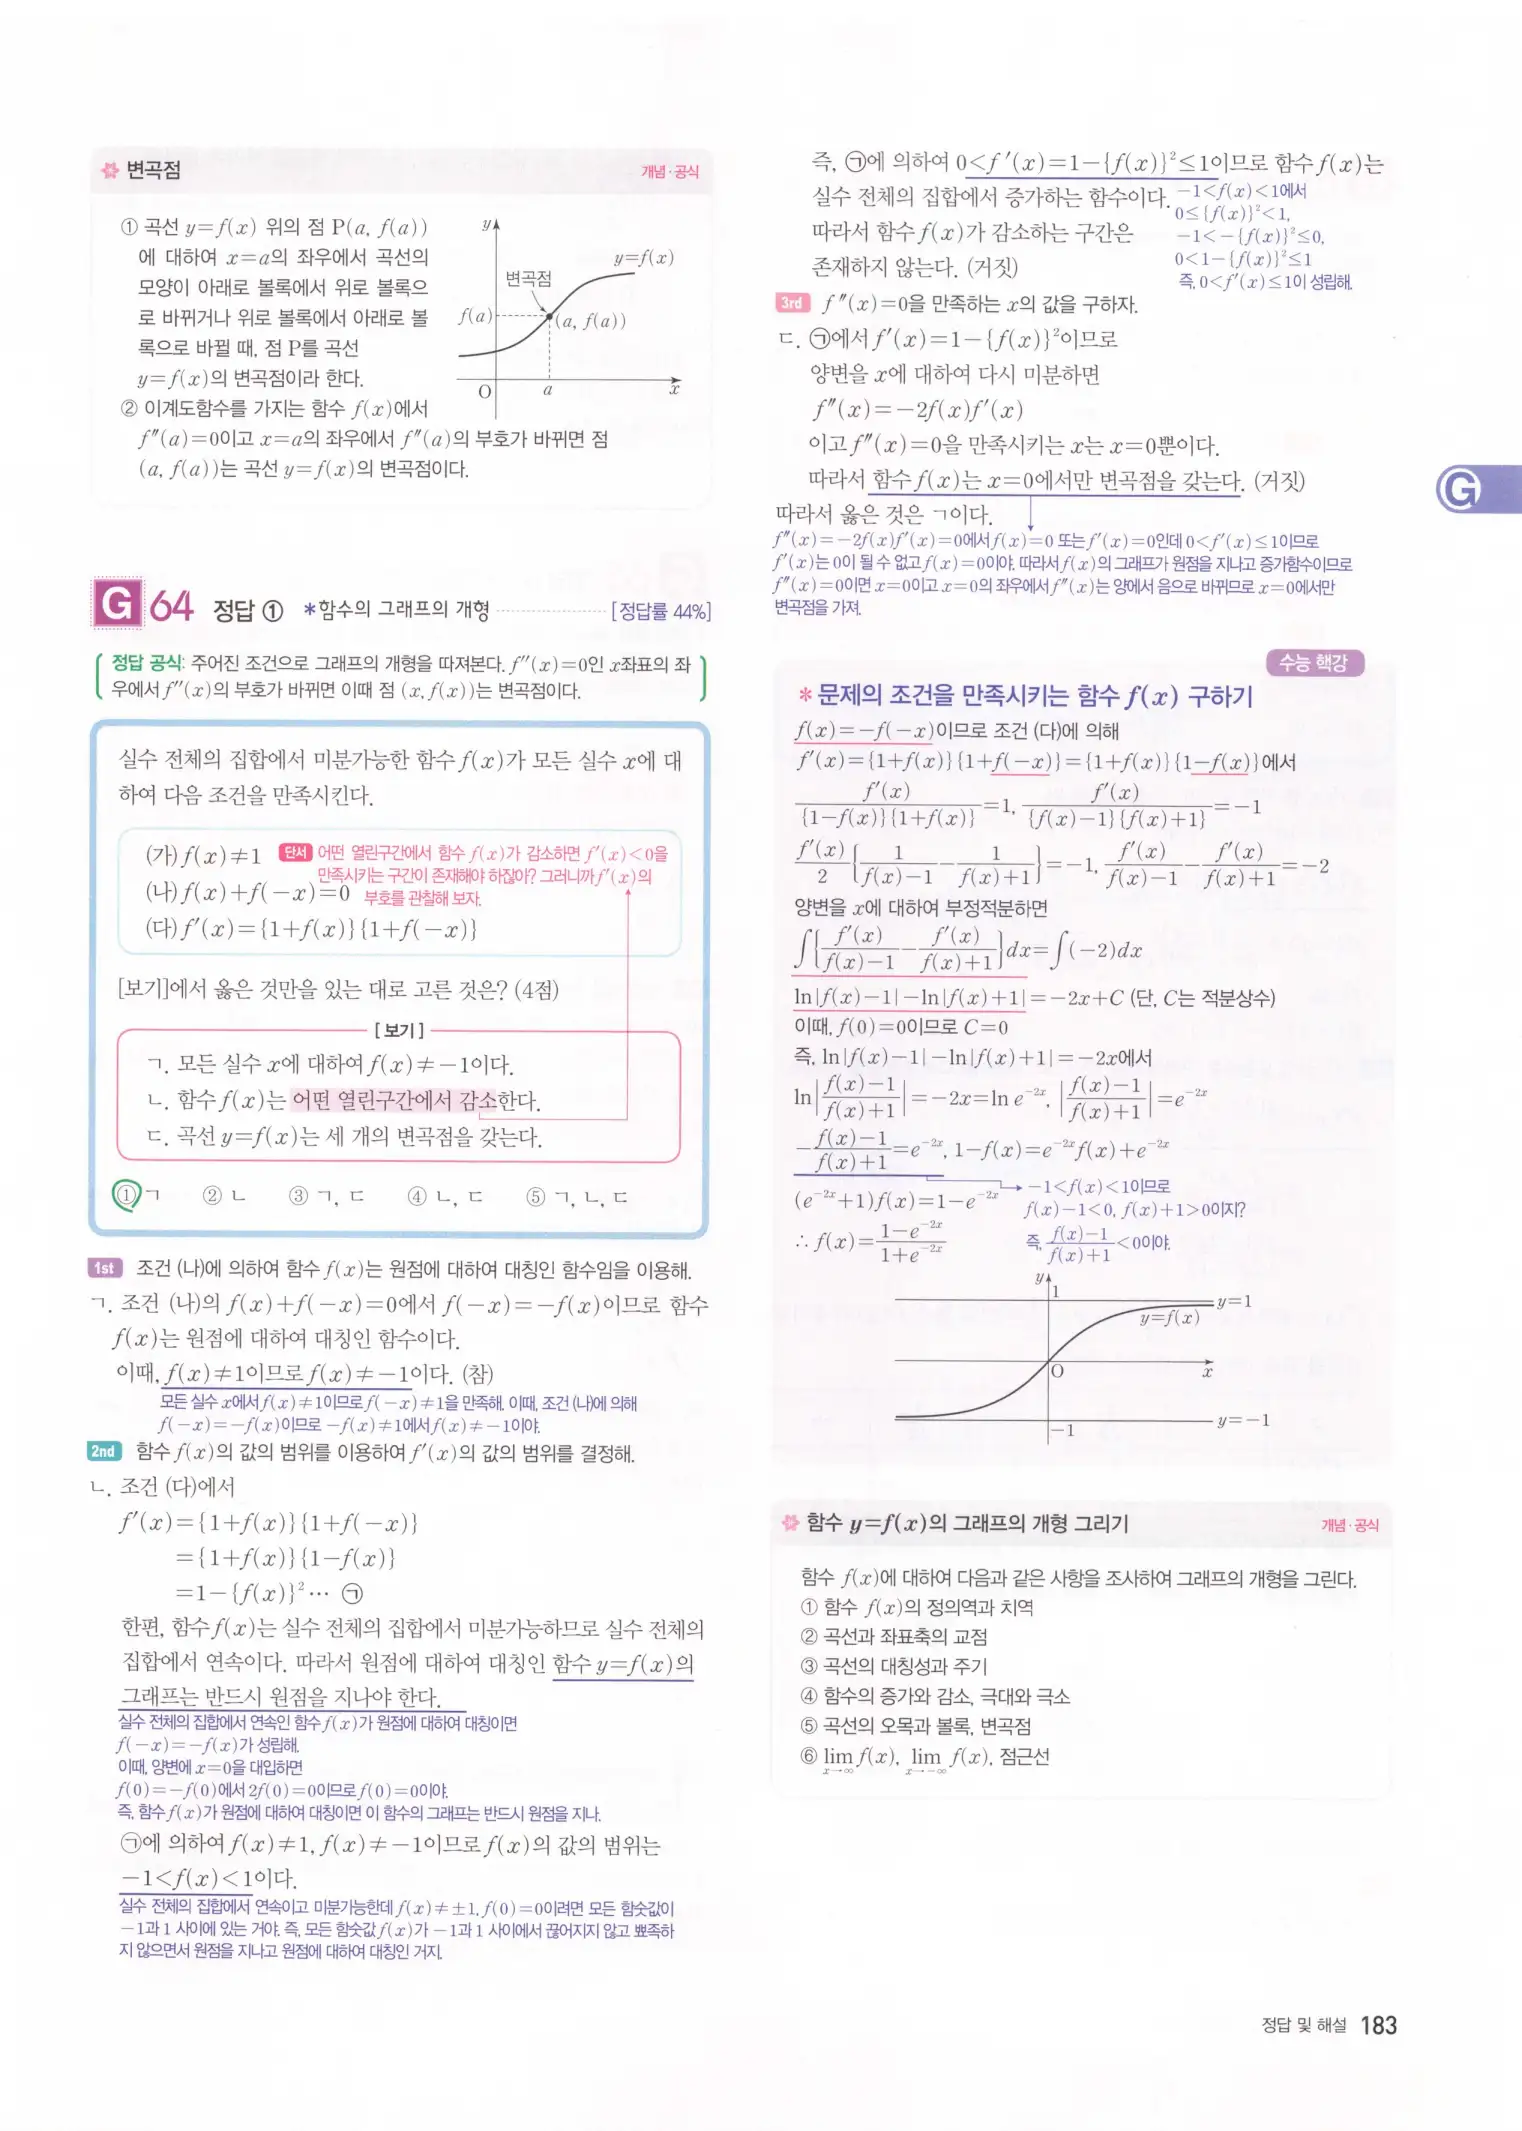 변곡점
개념·공식
① 곡선 y=f(x) 위의 점 P(a, f(a))
에 대하여 x=a의 좌우에서 곡선의
모양이 아래로 볼록에서 위로 볼록으
로 바뀌거나 위로 볼록에서 아래로 볼
록으로 바뀔 때, 점 P를 곡선
y=f(x)의 변곡점이라 한다.
y
y=f(x)
변곡점
f(a)
(a, f(a))
O
a
x
② 이계도함수를 가지는 함수 f(x)에서
f″(a)=0이고 x=a의 좌우에서 f″(a)의 부호가 바뀌면 점
(a, f(a))는 곡선 y=f(x)의 변곡점이다.
G 64 정답 ① *함수의 그래프의 개형 [정답률 44%]
정답 공식: 주어진 조건으로 그래프의 개형을 따져본다. f″(x)=0인 x좌표의 좌
우에서 f″(x)의 부호가 바뀌면 이때 점 (x, f(x))는 변곡점이다.
실수 전체의 집합에서 미분가능한 함수 f(x)가 모든 실수 x에 대
하여 다음 조건을 만족시킨다.
(가) f(x)≠1 단서 어떤 열린구간에서 함수 f(x)가 감소하면 f′(x)<0을
만족시키는 구간이 존재해야 하잖아? 그러니까 f′(x)의
(나) f(x)+f(-x)=0 부호를 관찰해 보자.
(다) f′(x)={1+f(x)}{1+f(-x)}
[보기]에서 옳은 것만을 있는 대로 고른 것은? (4점)
[보기]
ㄱ. 모든 실수 x에 대하여 f(x)≠-1이다.
ㄴ. 함수 f(x)는 어떤 열린구간에서 감소한다.
ㄷ. 곡선 y=f(x)는 세 개의 변곡점을 갖는다.
① ㄱ ② ㄴ ③ ㄱ, ㄷ ④ ㄴ, ㄷ ⑤ ㄱ, ㄴ, ㄷ
1st 조건 (나)에 의하여 함수 f(x)는 원점에 대하여 대칭인 함수임을 이용해.
ㄱ. 조건 (나)의 f(x)+f(-x)=0에서 f(-x)=-f(x)이므로 함수
f(x)는 원점에 대하여 대칭인 함수이다.
이때, f(x)≠1이므로 f(x)≠-1이다. (참)
모든 실수 x에서 f(x)≠1이므로 f(-x)≠1을 만족해. 이때, 조건 (나)에 의해
f(-x)=-f(x)이므로 -f(x)≠1에서 f(x)≠-1이야.
2nd 함수 f(x)의 값의 범위를 이용하여 f′(x)의 값의 범위를 결정해.
ㄴ. 조건 (다)에서
f′(x)={1+f(x)}{1+f(-x)}
={1+f(x)}{1-f(x)}
=1-{f(x)}²… ㉠
한편, 함수 f(x)는 실수 전체의 집합에서 미분가능하므로 실수 전체의
집합에서 연속이다. 따라서 원점에 대하여 대칭인 함수 y=f(x)의
그래프는 반드시 원점을 지나야 한다.
실수 전체의 집합에서 연속인 함수 f(x)가 원점에 대하여 대칭이면
f(-x)=-f(x)가 성립해.
이때, 양변에 x=0을 대입하면
f(0)=-f(0)에서 2f(0)=0이므로 f(0)=0이야.
즉, 함수 f(x)가 원점에 대하여 대칭이면 이 함수의 그래프는 반드시 원점을 지나.
㉠에 의하여 f(x)≠1, f(x)≠-1이므로 f(x)의 값의 범위는
-1<f(x)<1이다.
실수 전체의 집합에서 연속이고 미분가능한데 f(x)≠±1, f(0)=0이려면 모든 함숫값이
-1과 1 사이에 있는 거야. 즉, 모든 함숫값 f(x)가 -1과 1 사이에서 끊어지지 않고 뾰족하
지 않으면서 원점을 지나고 원점에 대하여 대칭인 거지.
즉, ㉠에 의하여 0<f′(x)=1-{f(x)}²≤1이므로 함수 f(x)는
실수 전체의 집합에서 증가하는 함수이다.
따라서 함수 f(x)가 감소하는 구간은
존재하지 않는다. (거짓)
-1<f(x)<1에서
0≤{f(x)}²<1,
-1<-{f(x)}²≤0,
0<1-{f(x)}²≤1
즉, 0<f′(x)≤1이 성립해.
3rd f″(x)=0을 만족하는 x의 값을 구하자.
ㄷ. ㉠에서 f′(x)=1-{f(x)}²이므로
양변을 x에 대하여 다시 미분하면
f″(x)=-2f(x)f′(x)
이고 f″(x)=0을 만족시키는 x는 x=0뿐이다.
따라서 함수 f(x)는 x=0에서만 변곡점을 갖는다. (거짓)
따라서 옳은 것은 ㄱ이다.
f″(x)=-2f(x)f′(x)=0에서 f(x)=0 또는 f′(x)=0인데 0<f′(x)≤1이므로
f′(x)는 0이 될 수 없고 f(x)=0이야. 따라서 f(x)의 그래프가 원점을 지나고 증가함수이므로
f″(x)=0이면 x=0이고 x=0의 좌우에서 f″(x)는 양에서 음으로 바뀌므로 x=0에서만
변곡점을 가져.
G
수능 핵강
*문제의 조건을 만족시키는 함수 f(x) 구하기
f(x)=-f(-x)이므로 조건 (다)에 의해
f′(x)={1+f(x)}{1+f(-x)}={1+f(x)}{1-f(x)}에서
f′(x)/({1-f(x)}{1+f(x)})=1, f′(x)/({f(x)-1}{f(x)+1})=-1
f′(x)/2 {1/(f(x)-1) - 1/(f(x)+1)}=-1, f′(x)/(f(x)-1) - f′(x)/(f(x)+1)=-2
양변을 x에 대하여 부정적분하면
∫{f′(x)/(f(x)-1) - f′(x)/(f(x)+1)}dx=∫(-2)dx
ln|f(x)-1|-ln|f(x)+1|=-2x+C (단, C는 적분상수)
이때, f(0)=0이므로 C=0
즉, ln|f(x)-1|-ln|f(x)+1|=-2x에서
ln|(f(x)-1)/(f(x)+1)|=-2x=ln e⁻²ˣ, |(f(x)-1)/(f(x)+1)|=e⁻²ˣ
-(f(x)-1)/(f(x)+1)=e⁻²ˣ, 1-f(x)=e⁻²ˣf(x)+e⁻²ˣ
(e⁻²ˣ+1)f(x)=1-e⁻²ˣ
∴ f(x)=(1-e⁻²ˣ)/(1+e⁻²ˣ)
-1<f(x)<1이므로
f(x)-1<0, f(x)+1>0이지?
즉, (f(x)-1)/(f(x)+1)<0이야.
y
1
y=1
y=f(x)
O
x
-1
y=-1
함수 y=f(x)의 그래프의 개형 그리기
개념·공식
함수 f(x)에 대하여 다음과 같은 사항을 조사하여 그래프의 개형을 그린다.
① 함수 f(x)의 정의역과 치역
② 곡선과 좌표축의 교점
③ 곡선의 대칭성과 주기
④ 함수의 증가와 감소, 극대와 극소
⑤ 곡선의 오목과 볼록, 변곡점
⑥ lim x→∞ f(x), lim x→-∞ f(x), 점근선
정답 및 해설 183